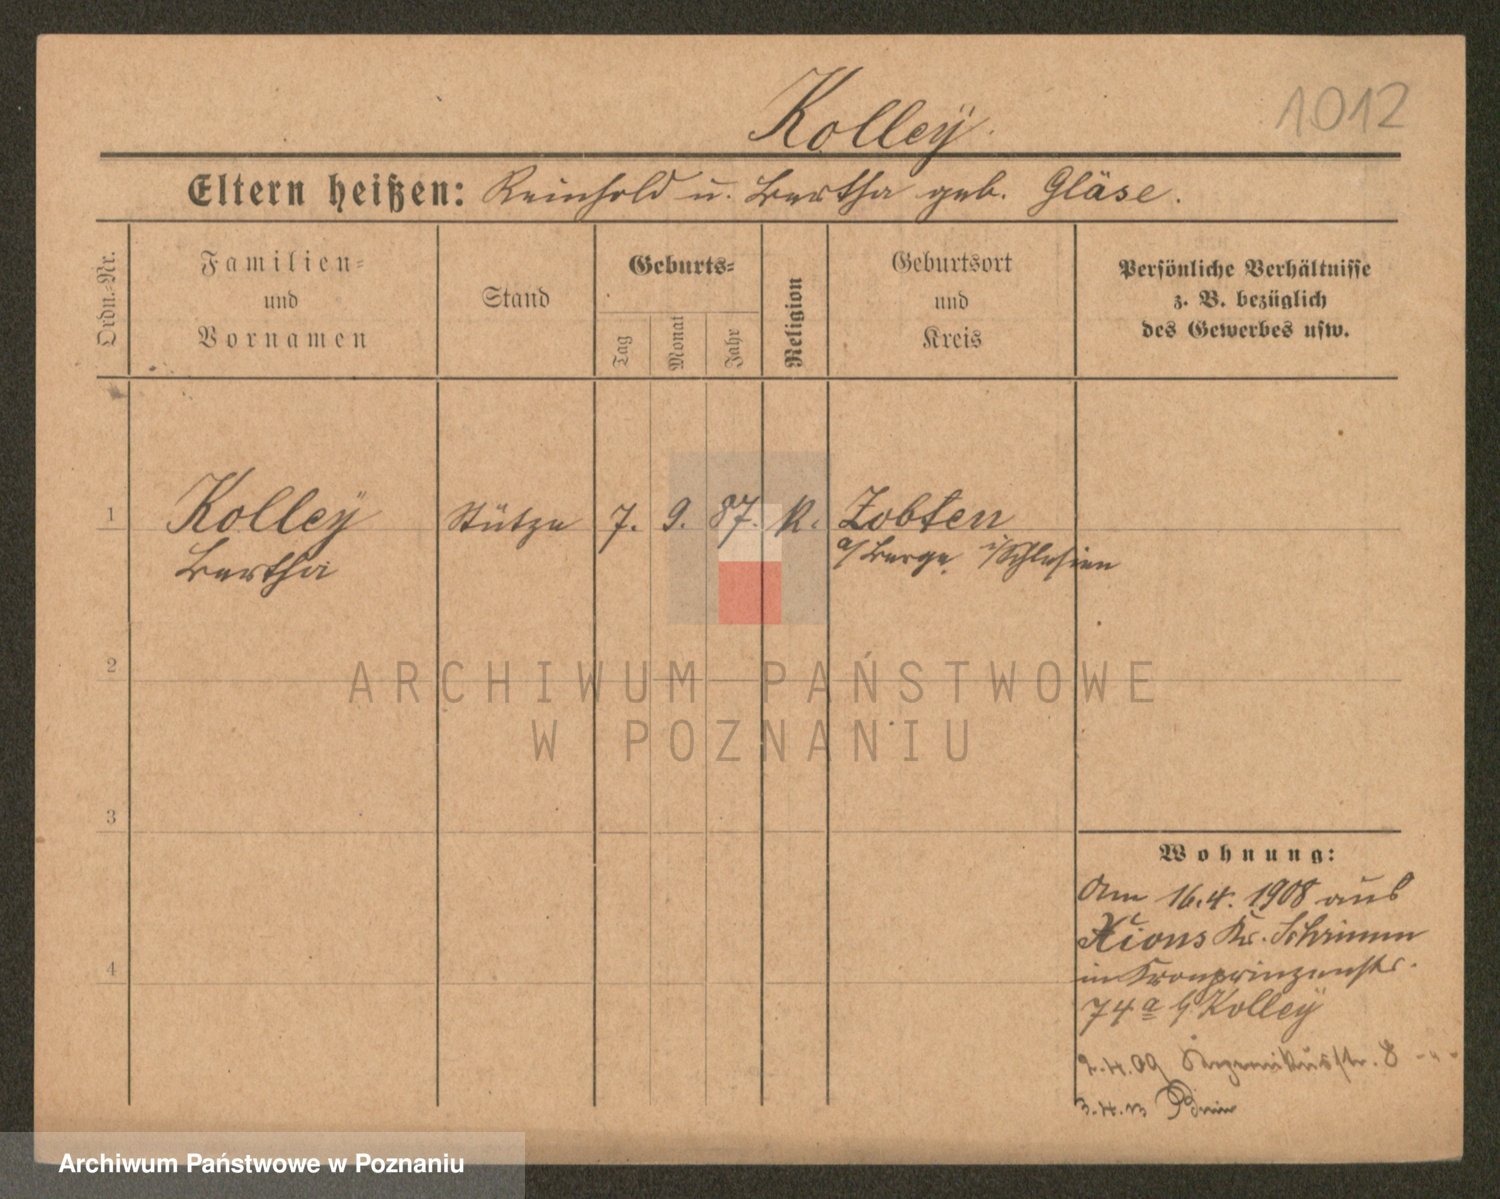 Kolleÿ.
1012
Eltern heißen: Reinhold u. Bertha geb. Gläse.
Ordn.-Nr.
Familien-
und
Vornamen
Stand
Geburts-
Tag
Monat
Jahr
Religion
Geburtsort
und
Kreis
Persönliche Verhältnisse
z. B. bezüglich
des Gewerbes usw.
1 Kolleÿ Stütze 7. 9. 87. k. Zobten
Bertha a/Berge i/Schlesien
2
ARCHIWUM PAŃSTWOWE
W POZNANIU
3
Wohnung:
Am 16.4.1908 aus
Xions Kr. Schrimm
in Kronprinzenstr.
4
74a b/Kolleÿ
2.4.09 8
3.4.13
Archiwum Państwowe w Poznaniu